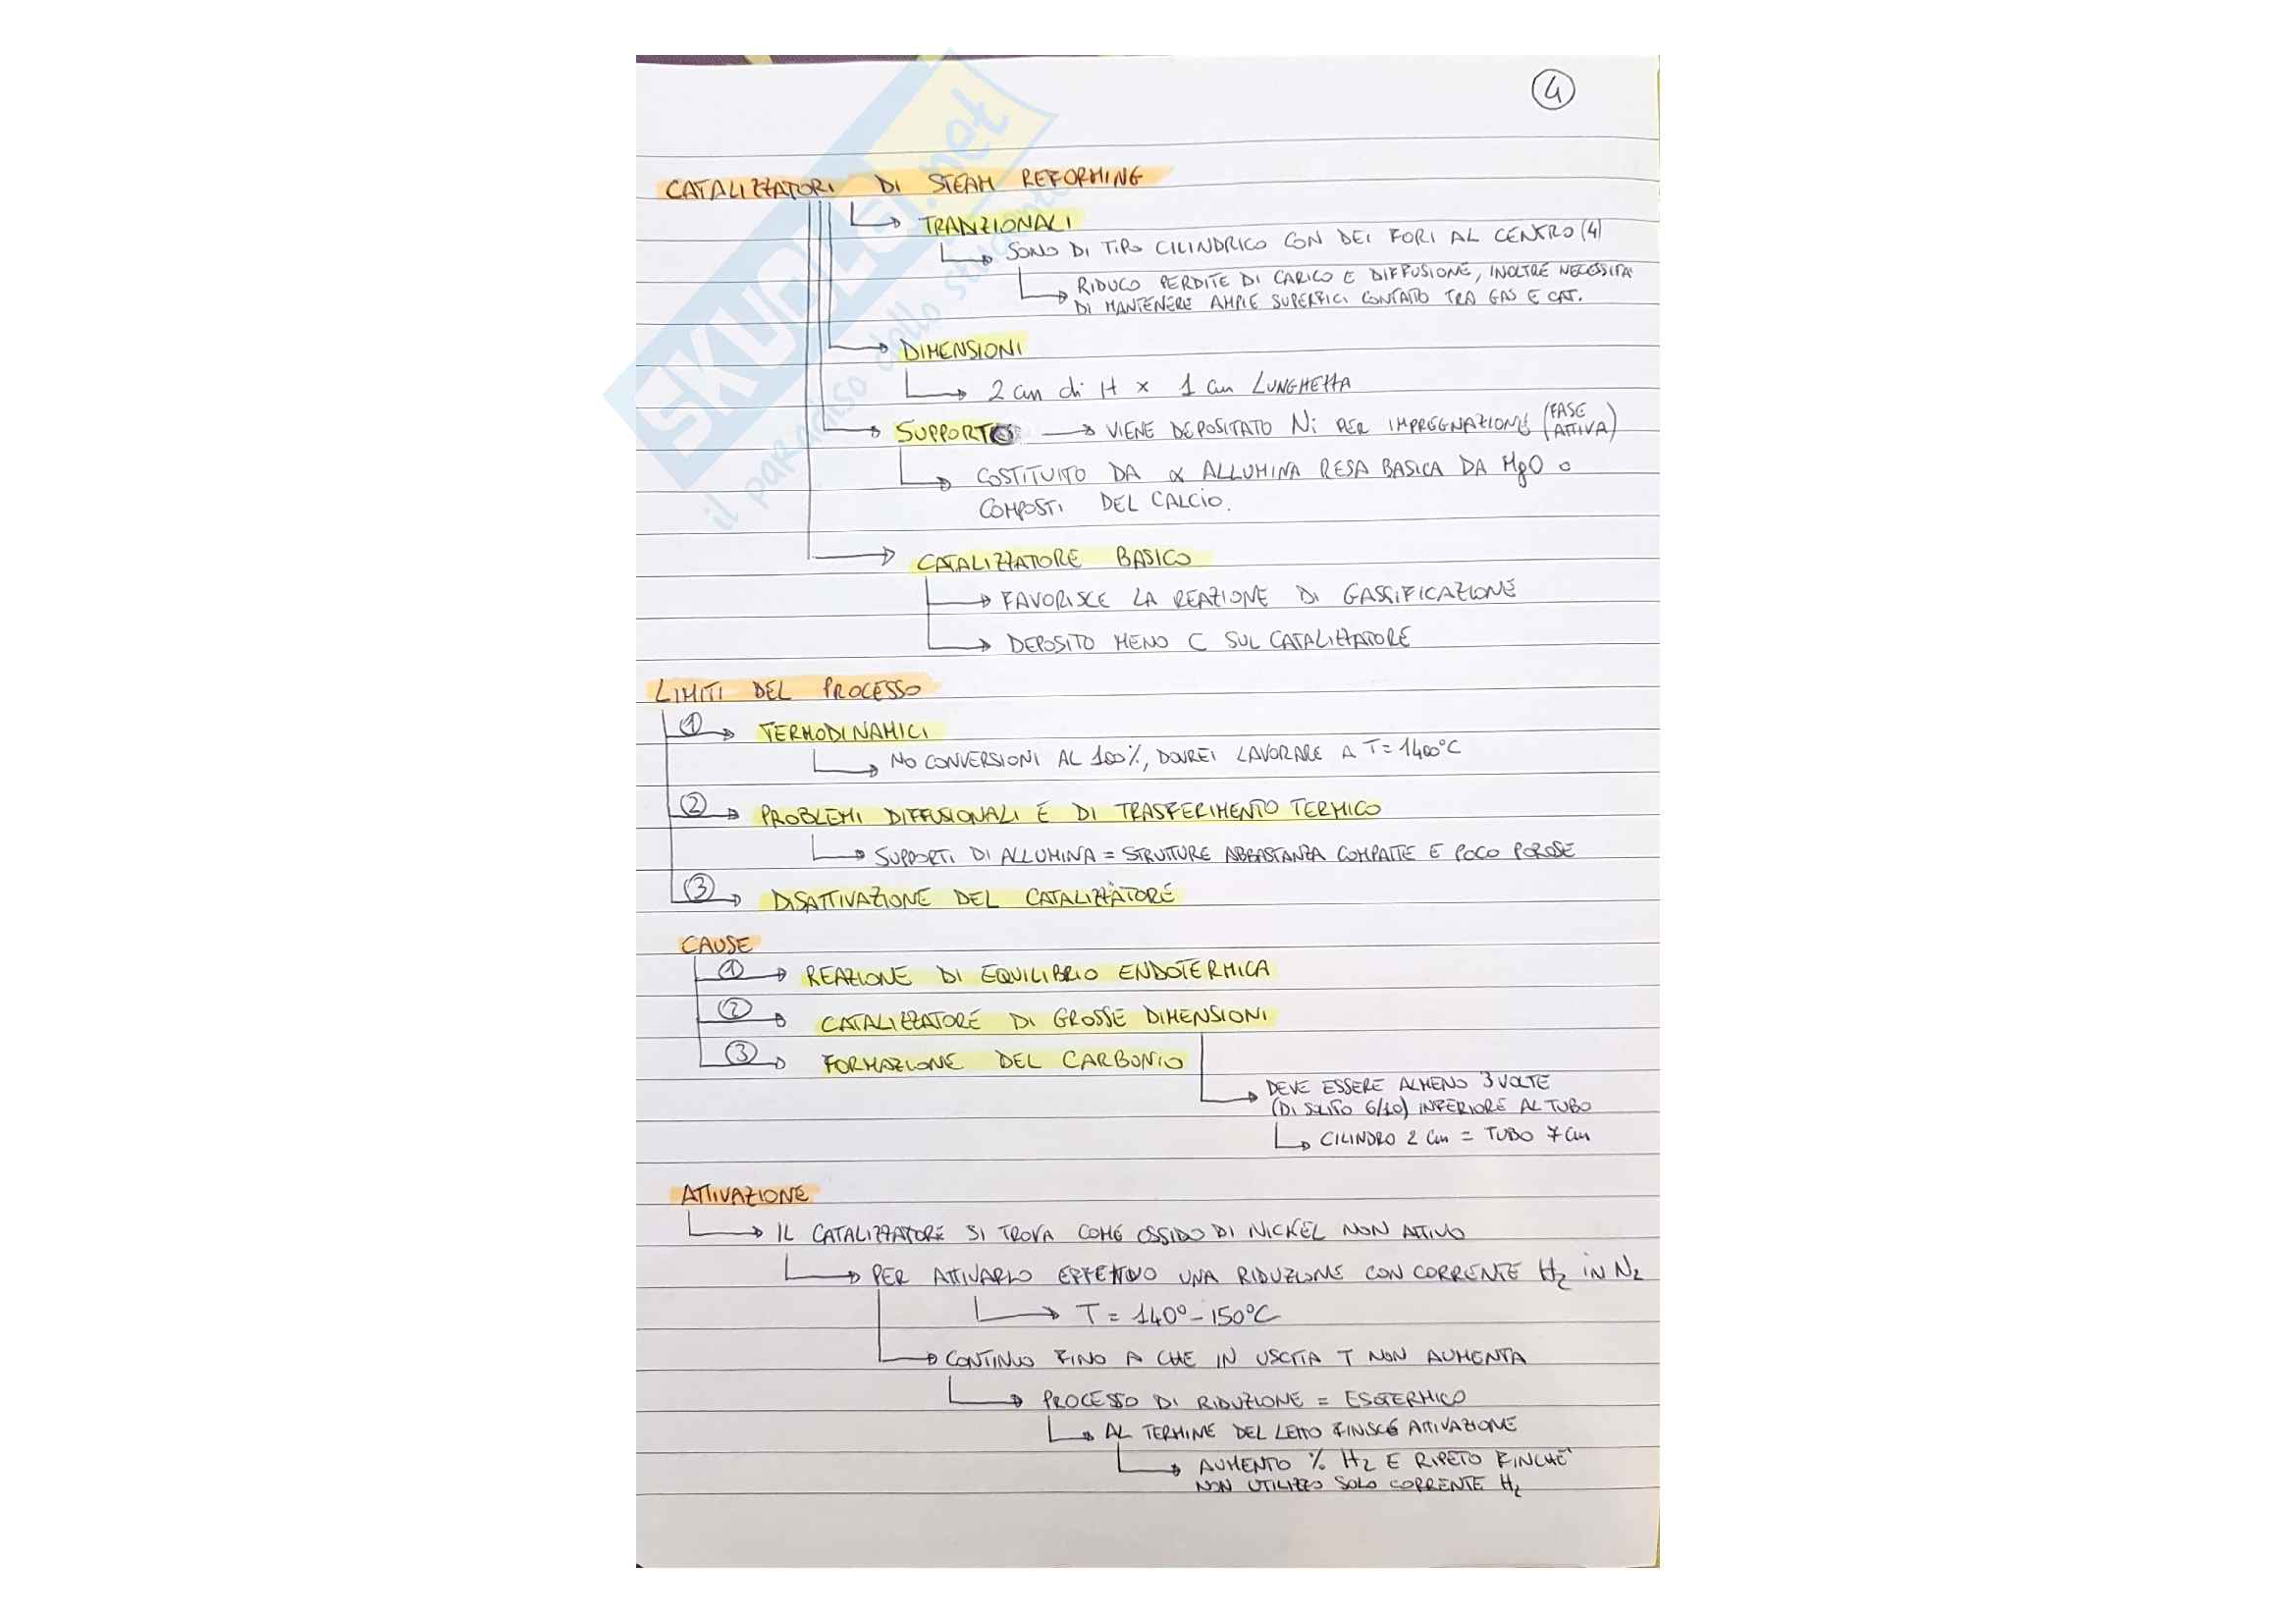 4
CATALIZZATORI DI STEAM REFORMING
TRADIZIONALI
SONO DI TIPO CILINDRICO CON DEI FORI AL CENTRO (4)
RIDUCO PERDITE DI CARICO E DIFFUSIONE, INOLTRE NECESSITA'
DI MANTENERE AMPIE SUPERFICI CONTATTO TRA GAS E CAT.
DIMENSIONI
2 cm di H x 1 cm LUNGHEZZA
SUPPORTO → VIENE DEPOSITATO Ni PER IMPREGNAZIONE (FASE ATTIVA)
COSTITUITO DA α ALLUMINA RESA BASICA DA MgO o
COMPOSTI DEL CALCIO.
CATALIZZATORE BASICO
FAVORISCE LA REAZIONE DI GASSIFICAZIONE
DEPOSITO MENO C SUL CATALIZZATORE
LIMITI DEL PROCESSO
① TERMODINAMICI
NO CONVERSIONI AL 100%, DOVREI LAVORARE A T = 1400°C
② PROBLEMI DIFFUSIONALI E DI TRASFERIMENTO TERMICO
SUPPORTI DI ALLUMINA = STRUTTURE ABBASTANZA COMPATTE E POCO POROSE
③ DISATTIVAZIONE DEL CATALIZZATORE
CAUSE
① REAZIONE DI EQUILIBRIO ENDOTERMICA
② CATALIZZATORE DI GROSSE DIMENSIONI
③ FORMAZIONE DEL CARBONIO
DEVE ESSERE ALMENO 3 VOLTE
(DI SOLITO 6/10) INFERIORE AL TUBO
CILINDRO 2 cm = TUBO 7 cm
ATTIVAZIONE
IL CATALIZZATORE SI TROVA COME OSSIDO DI NICKEL NON ATTIVO
PER ATTIVARLO EFFETTUO UNA RIDUZIONE CON CORRENTE H₂ IN N₂
T = 140° - 150°C
CONTINUO FINO A CHE IN USCITA T NON AUMENTA
PROCESSO DI RIDUZIONE = ESOTERMICO
AL TERMINE DEL LETTO FINISCE ATTIVAZIONE
AUMENTO % H₂ E RIPETO FINCHE'
NON UTILIZZO SOLO CORRENTE H₂
SKUOLA.net
il paradiso dello studente